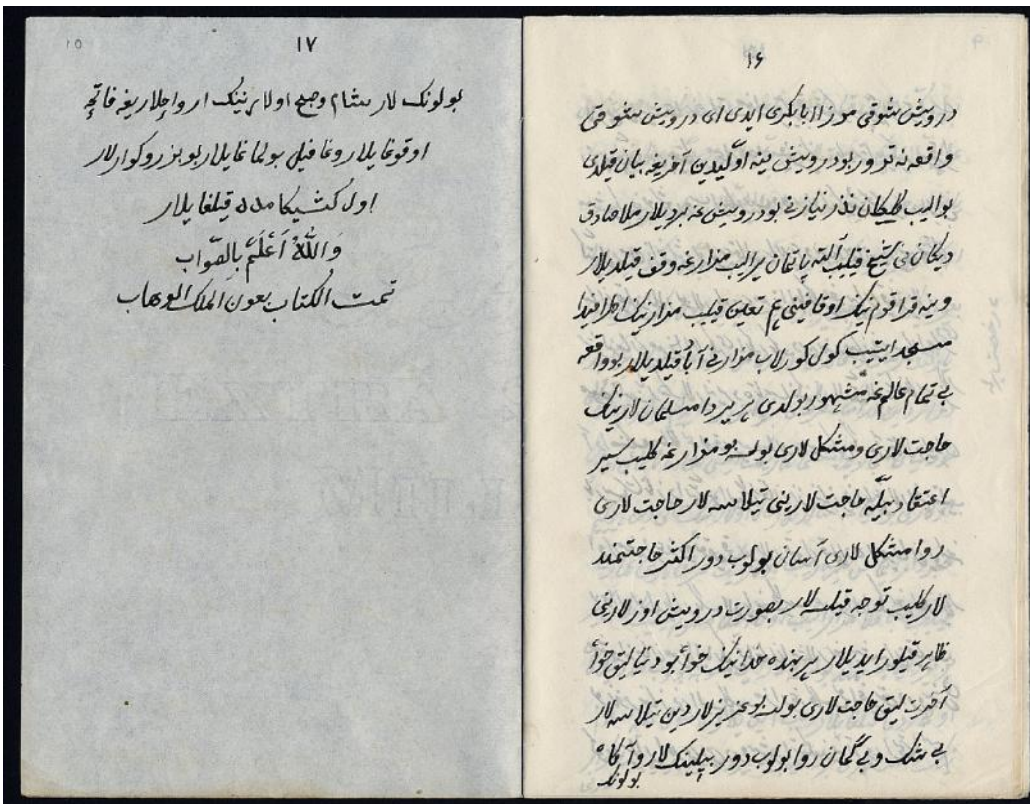 ۱۶
درویش شوقی موزا ابابکری ایدی ای درویش شوقی
واقعه نه تورور بو درویش ینه اوّلیدین آخریغه بیان قیلدی
بو الیب کلیکان نذر نیازنی بو درویش غه بردیلار ملا صادق
دیکان نی شیخ قیلیب آلته پاتمان یر الیب مزارغه وقف قیلدیلار
وینه قراقوم نیک اوقافینی هم تعین قیلیب مزارنیک اطرافیدا
مسجد ایتیب کول کورلاب مزارنی آباد قیلدیلار بو واقعه
نی تمام عالم غه مشهور بولدی هر یردا مسلمان لارنیک
حاجت لاری ومشکل لاری بولسه بو مزارغه کلیب
اعتقاد بیله حاجت لارینی تیلاسه لار حاجت لاری
روا مشکل لاری آسان بولوب دور اکثر حاجتمند
لار کلیب توجه قیلسه لار بصورت درویش اوزلارنی
ظاهر قیلور ایدیلار هر بنده خدانیک خواه بو دنیالیق خواه
آخرت لیق حاجت لاری بولسه بو عزیزلاردین تیلاسه لار
بی شک و بی گمان روا بولوب دور بیلینک لار و آگاه
بولونک
۱۷
بولونک لار شام وصبح اولارنینک ارواحلاریغه فاتحه
اوقوغایلار وغافیل بولماغایلار بو بزروکوارلار
اول کشیکا مدد قیلغایلار
وَاللّٰهُ اَعْلَمُ بِالصَّواب
تمت الکتاب بعون الملک الوهاب